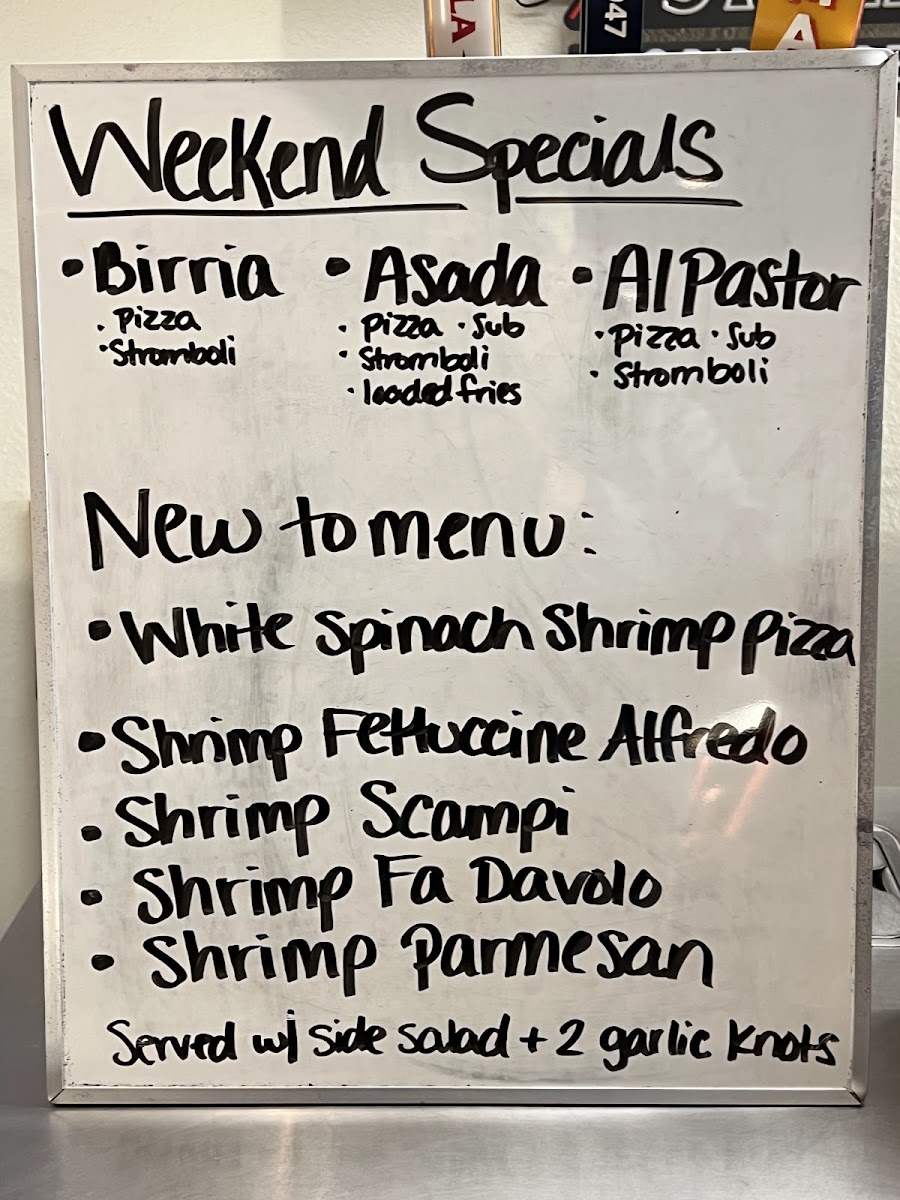 LA
047
A
Weekend Specials
• Birria • Asada • Al Pastor
· Pizza · Pizza · Sub · Pizza · Sub
· Stromboli · Stromboli · Stromboli
· loaded fries
New to menu:
• White Spinach Shrimp pizza
• Shrimp Fettuccine Alfredo
• Shrimp Scampi
• Shrimp Fa Davolo
• Shrimp Parmesan
Served w/ side salad + 2 garlic knots